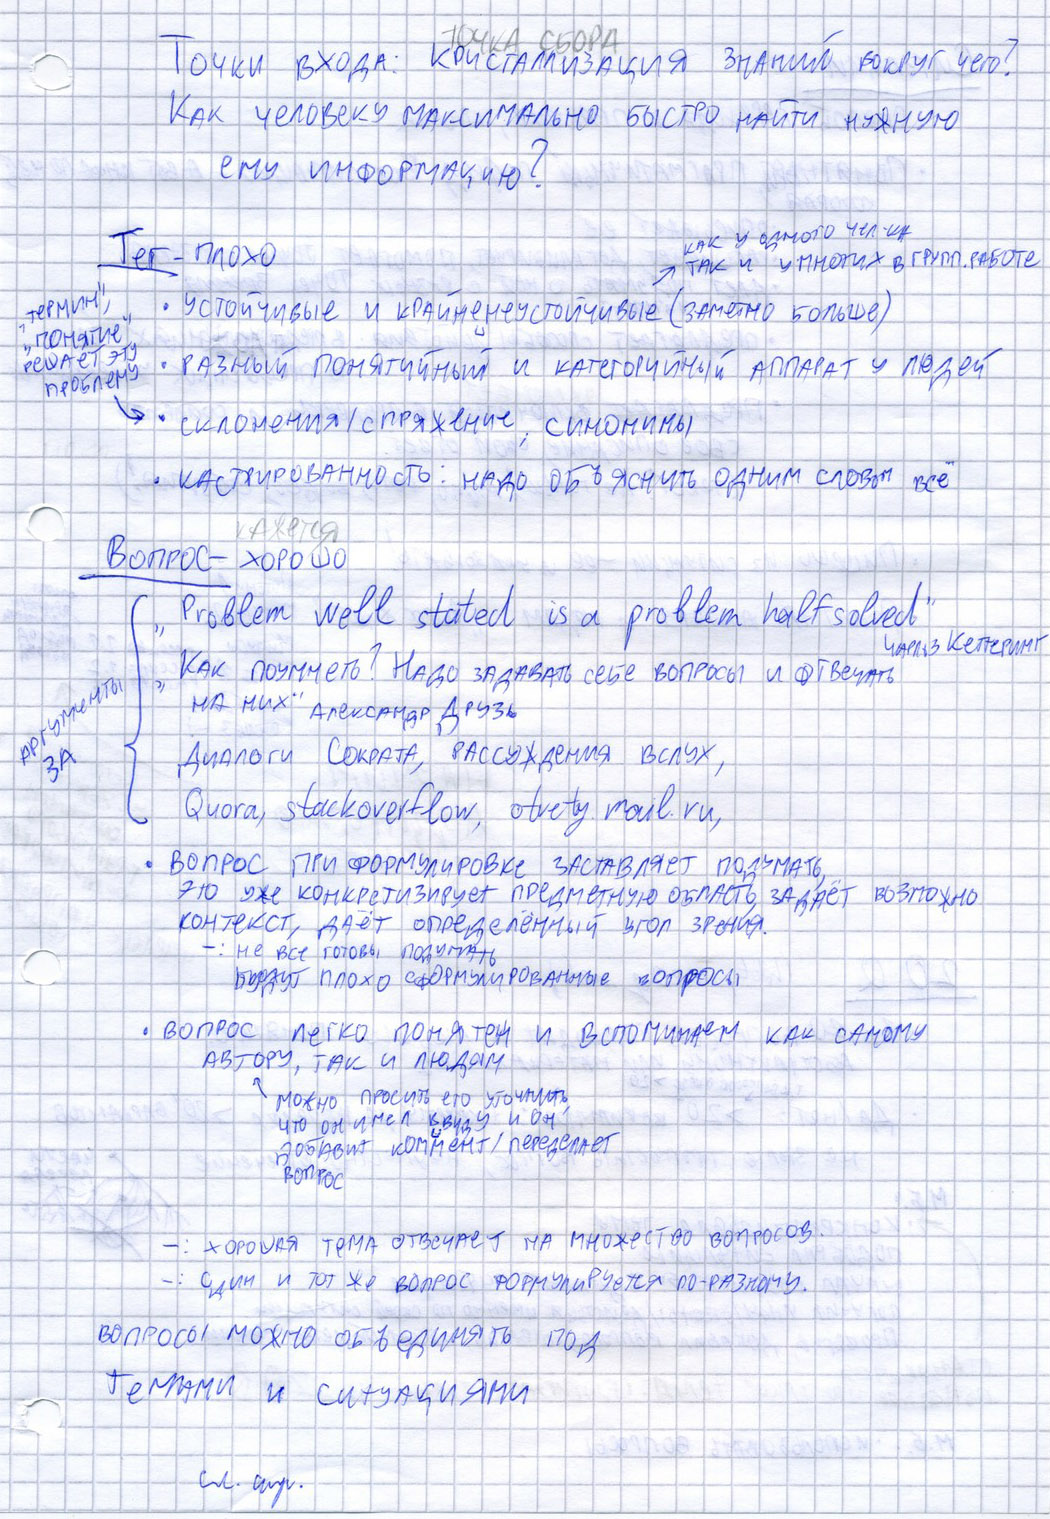 ТОЧКА СБОРА
Точки входа: Кристаллизация знаний вокруг чего?
Как человеку максимально быстро найти нужную
ему информацию?
Тег - плохо
как у одного чел-ка
так и у многих в групп. работе
• устойчивые и крайне неустойчивые (заметно больше)
"термин",
"понятие"
решает эту
проблему
• разный понятийный и категорийный аппарат у людей
• склонения/спряжение, синонимы
• кастрированность: надо объяснить одним словом всё
кажется
Вопрос - хорошо
аргументы
за
„Problem well stated is a problem half solved"
Чарлз Кеттеринг
„Как поумнеть? Надо задавать себе вопросы и отвечать
на них" Александр Друзь
Диалоги Сократа, рассуждения вслух,
Quora, stackoverflow, otvety.mail.ru,
• вопрос при формулировке заставляет подумать,
это уже конкретизирует предметную область, задаёт возможно
контекст, даёт определённый угол зрения.
-: не все готовы подумать
будут плохо сформулированные вопросы
• вопрос легко понятен и вспоминаем как самому
автору, так и людям
можно просить его уточнить,
что он имел ввиду и он
добавит коммент/переделает
вопрос
-: хорошая тема отвечает на множество вопросов.
-: один и тот же вопрос формулируется по-разному.
вопросы можно объединять под
темами и ситуациями
см. стр.